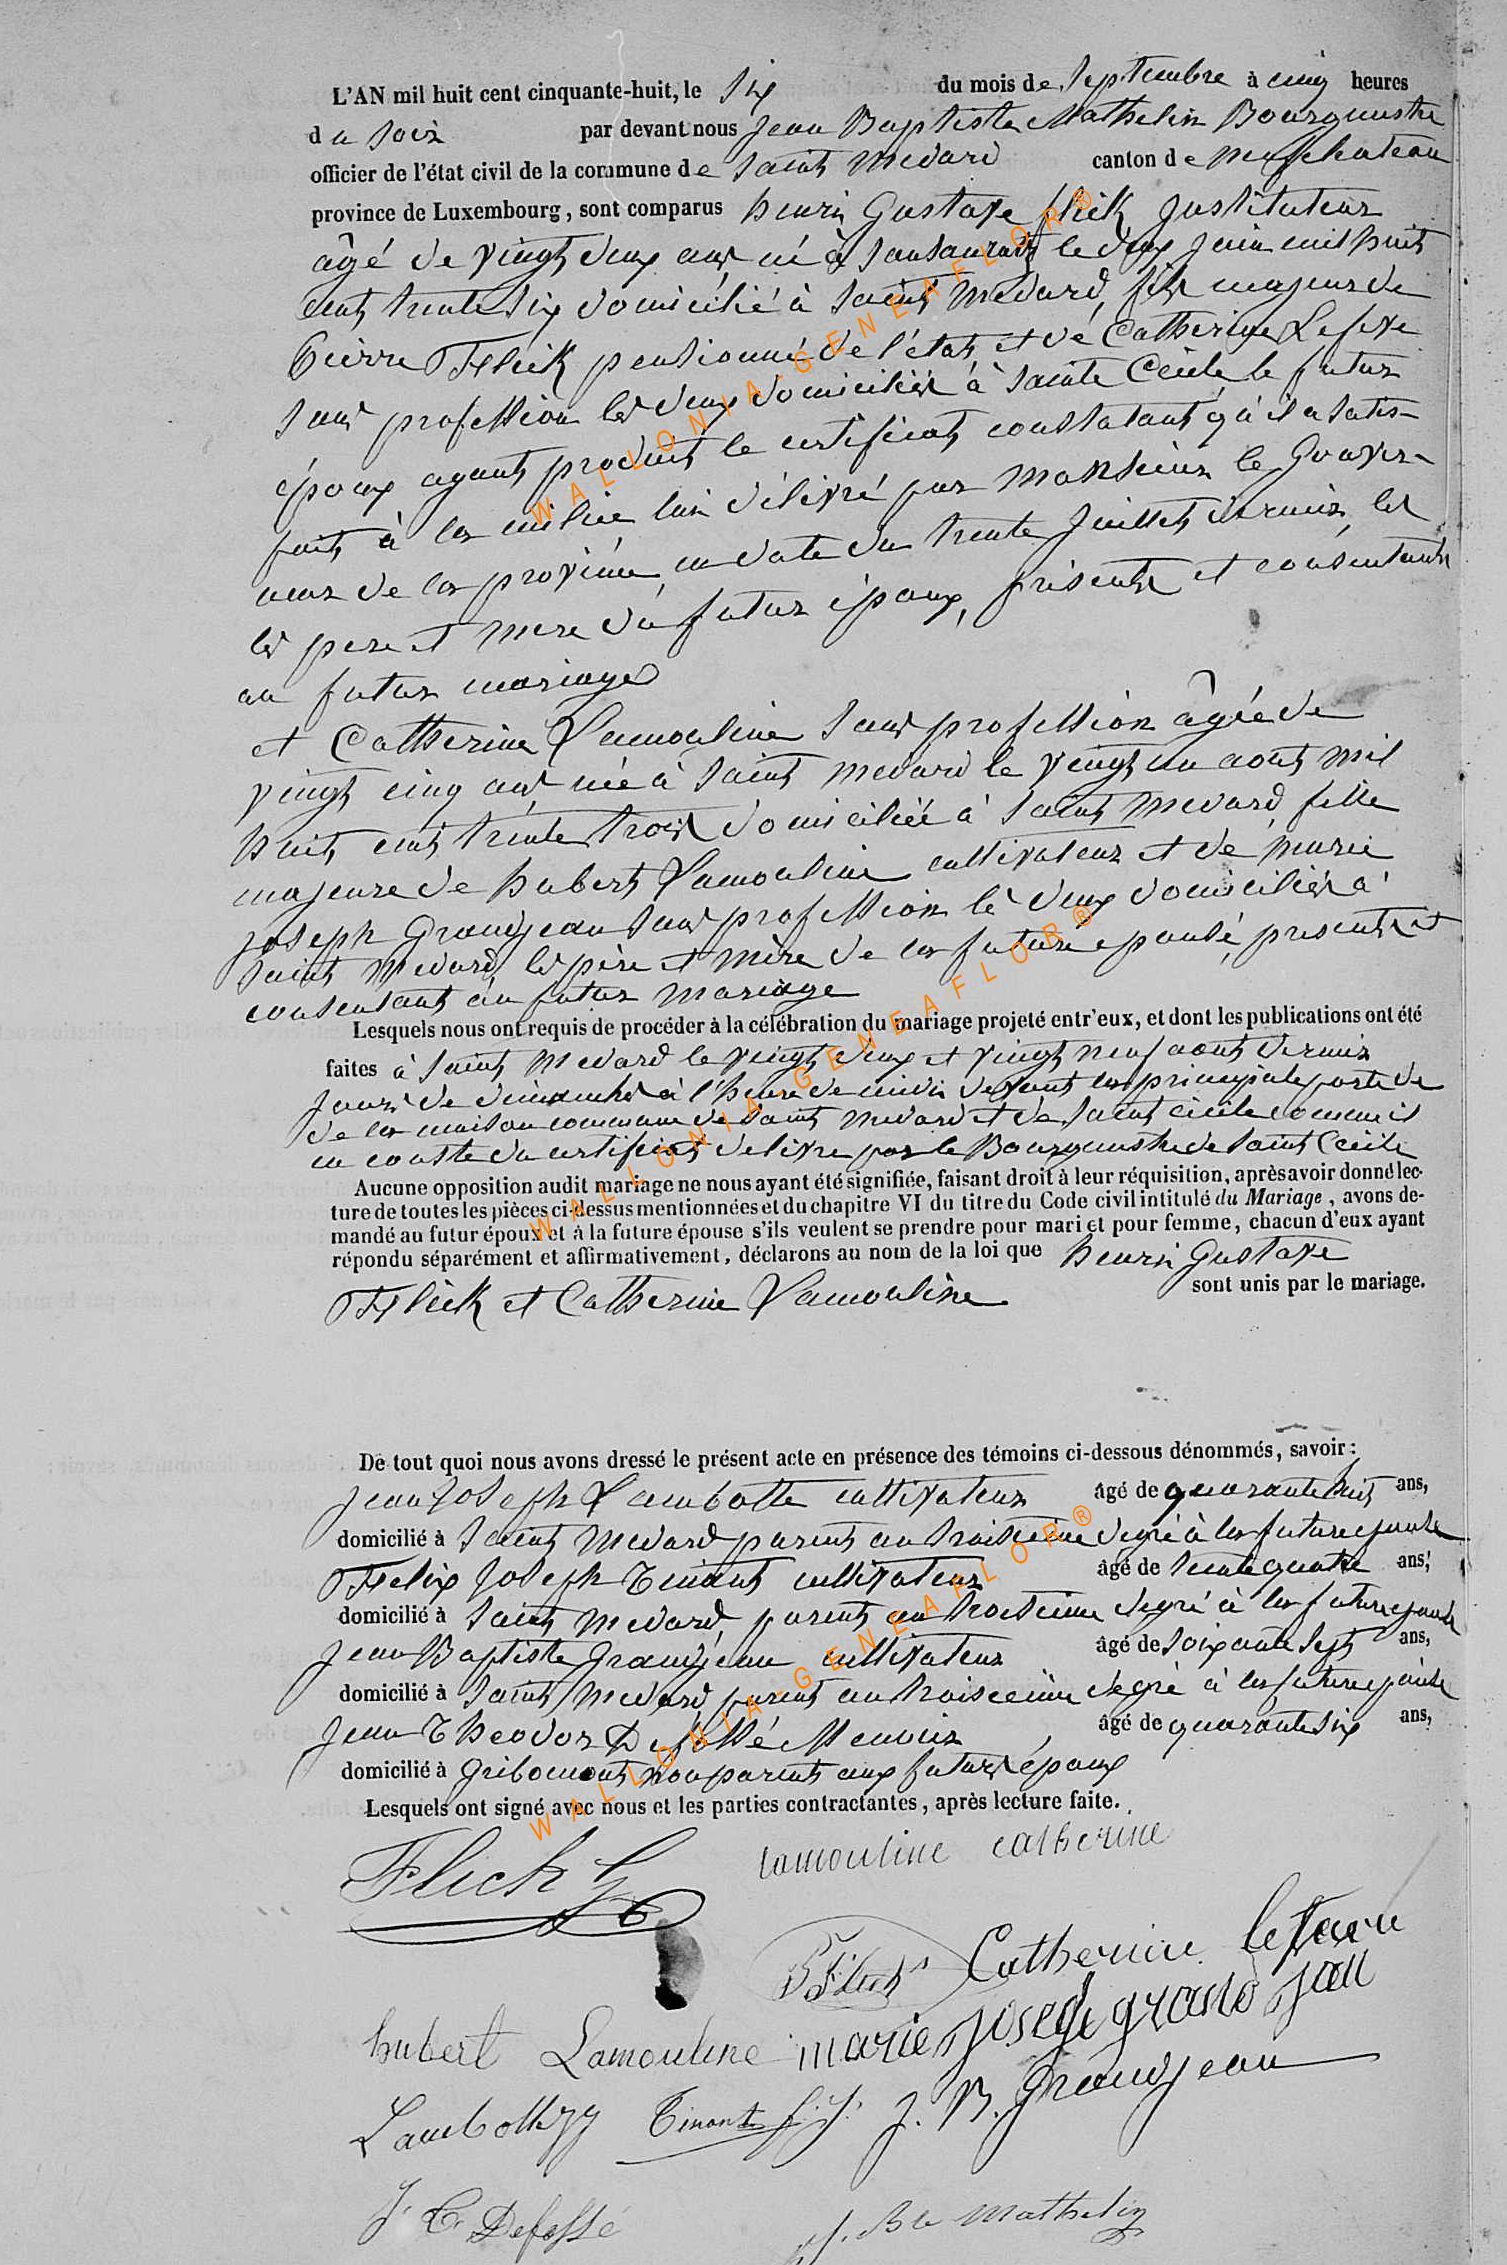 L'AN mil huit cent cinquante-huit, le six du mois de Septembre à cinq heures
du soir par devant nous Jean Baptiste Mathelin Bourgmestre
officier de l'état civil de la commune de Saint Medard canton de neufchateau
province de Luxembourg, sont comparus henri Gustave flick Instituteur
âgé de vingt deux ans né à le deux juin mil huit
cent trente six domicilié à Saint Medard, fils majeur de
Pierre Flick pensionné de l'état et de Catherine Lefevre
sans profession les deux domiciliés à Sainte Cécile le futur
époux ayant produit le certificat constatant qu'il a satis-
fait à la milice lui délivré par Monsieur le Gouver-
neur de la province en date du trente Juillet dernier, les
les pere et mere du futur époux, présents et consentants
au futur mariage
et Catherine Lamouline sans profession âgée de
vingt cinq ans née à Saint Medard le vingt un aout mil
huit cent trente trois domiciliée à Saint Medard, fille
majeure de hubert Lamouline cultivateur et de Marie
joseph Grandjean sans profession les deux domiciliés à
Saint Medard les père et mère de la future épouse, présents et
consentant au futur mariage
Lesquels nous ont requis de procéder à la célébration du mariage projeté entr'eux, et dont les publications ont été
faites à Saint Medard le vingt deux et vingt neuf aout dernier
jours de dimanche à l'heure de midi devant la principale porte de
de la maison commune de Saint Medard et de Saint Cécile comme il
en conste du certificat delivré par le Bourgmestre de Saint Cécile
Aucune opposition audit mariage ne nous ayant été signifiée, faisant droit à leur réquisition, après avoir donné lec-
ture de toutes les pièces ci-dessus mentionnées et du chapitre VI du titre du Code civil intitulé du Mariage, avons de-
mandé au futur époux et à la future épouse s'ils veulent se prendre pour mari et pour femme, chacun d'eux ayant
répondu séparément et affirmativement, déclarons au nom de la loi que henri Gustave
Flick et Catherine Lamouline sont unis par le mariage.
De tout quoi nous avons dressé le présent acte en présence des témoins ci-dessous dénommés, savoir:
Jean Joseph Lambotte cultivateur âgé de quarante huit ans,
domicilié à Saint Medard parent au troisième degré à la future épouse
Felix Joseph Tinant cultivateur âgé de trente quatre ans,
domicilié à Saint Medard, parent au troisième degré à la future épouse
Jean Baptiste Grandjean cultivateur âgé de soixante sept ans,
domicilié à Saint Medard parent au troisieme degré à la future épouse
Jean Theodor Defossé Menuisier âgé de quarante six ans,
domicilié à Gribomont non parent aux futurs époux
Lesquels ont signé avec nous et les parties contractantes, après lecture faite.
Flick
lamouline catherine
P. Flick Catherine lefevre
hubert Lamouline marie joseph grand jean
Lambotte JJ Tinant f. j. J. B. Grandjean
J. T. Defossé J. Bte Mathelin
WALLONIA-GENEAFLOR®
WALLONIA-GENEAFLOR®
WALLONIA-GENEAFLOR®